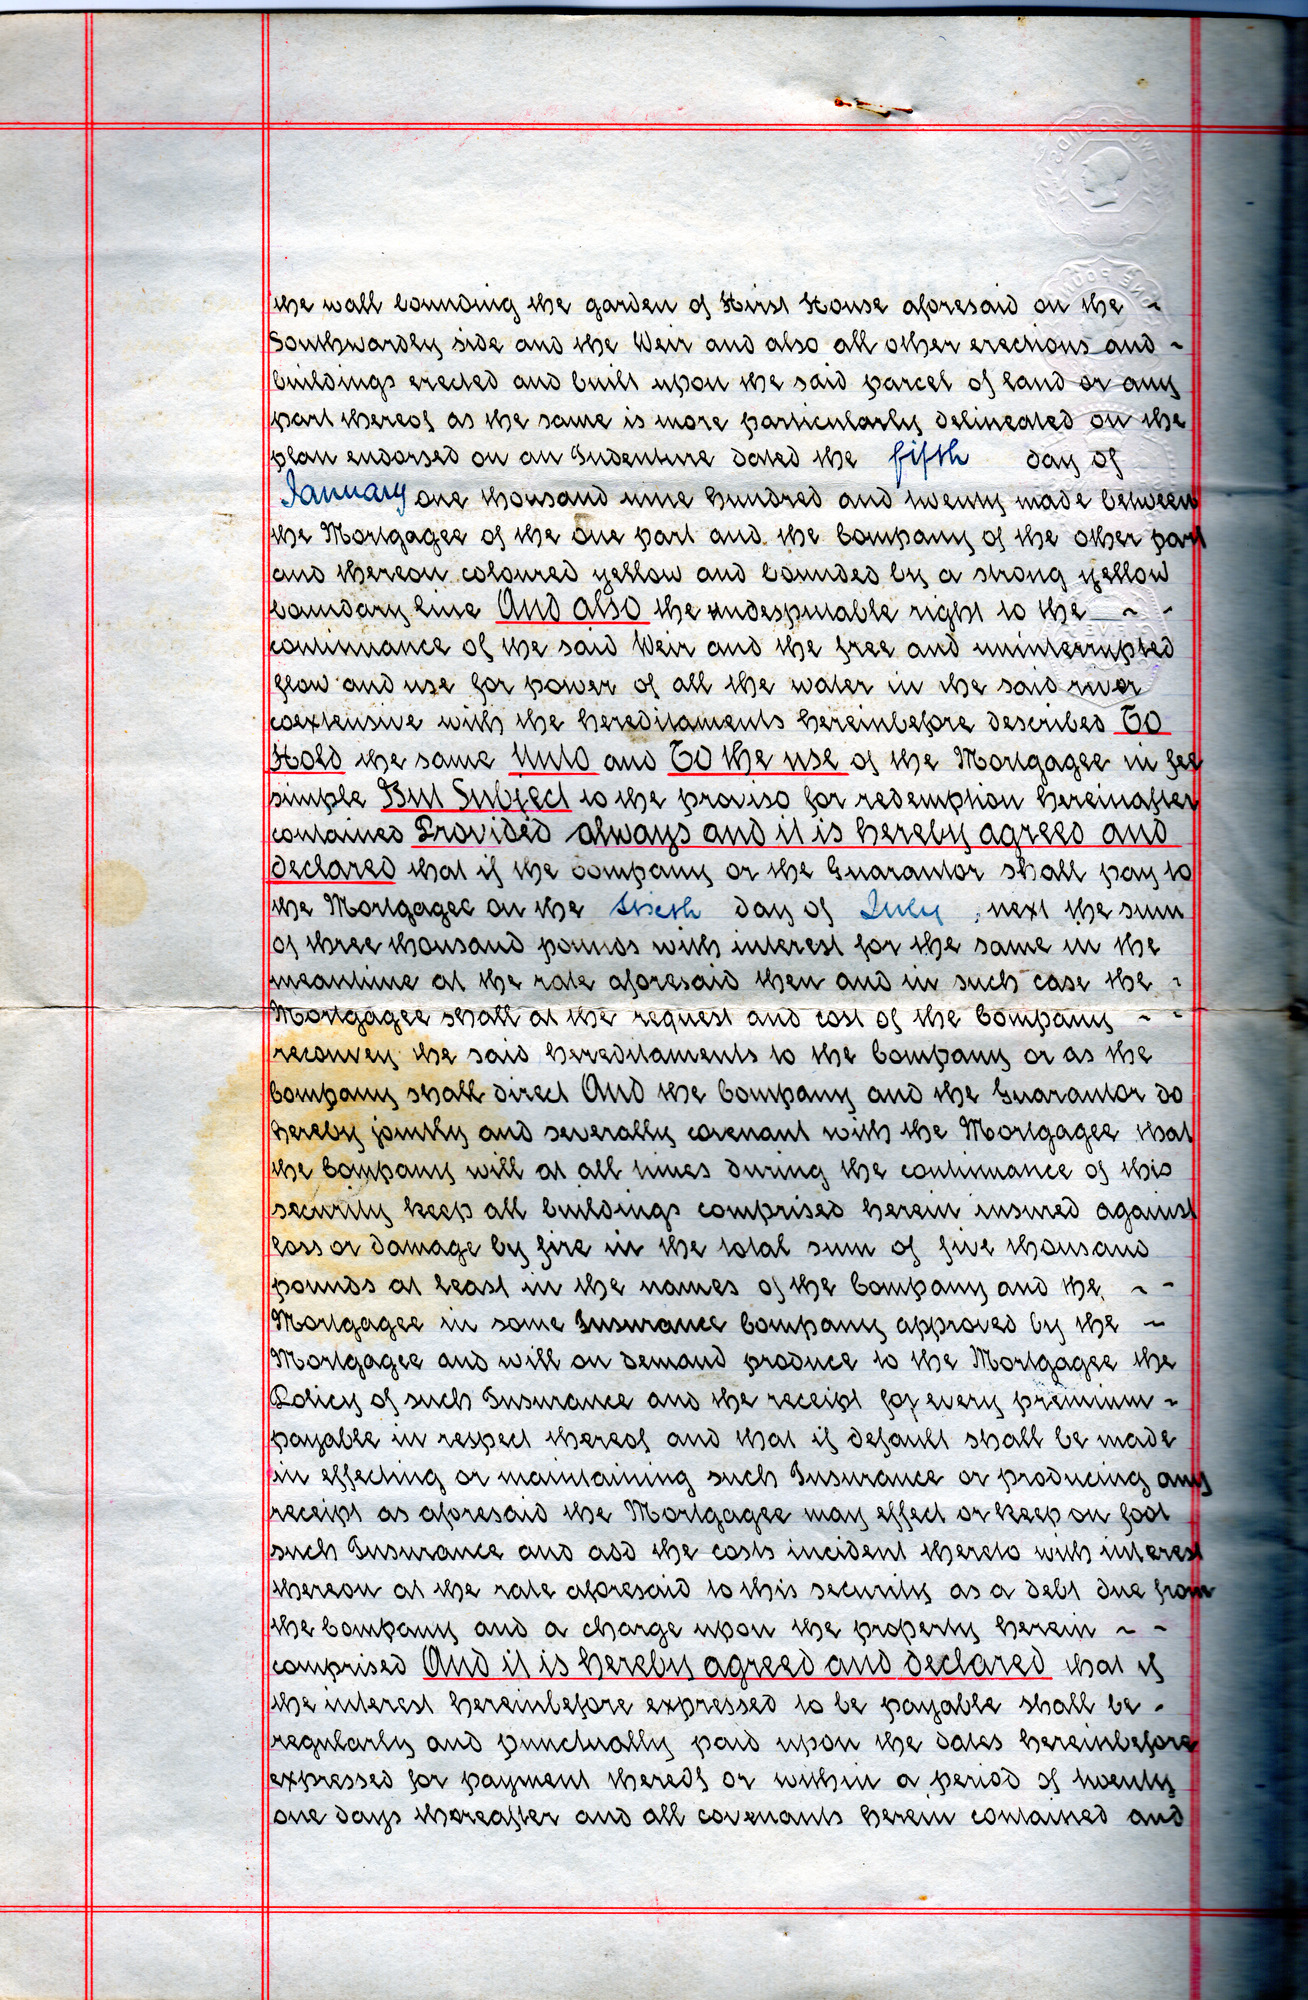 the wall bounding the garden of Hirst House aforesaid on the
Southwardly side and the Weir and also all other erections and
buildings erected and built upon the said parcel of land or any
part thereof as the same is more particularly delineated on the
plan endorsed on an Indenture dated the fifth day of
January one thousand nine hundred and twenty made between
the Mortgagee of the one part and the Company of the other part
and thereon coloured yellow and bounded by a strong yellow
boundary line And also the undesputable right to the
continuance of the said Weir and the free and uninterrupted
flow and use for power of all the water in the said river
coextensive with the hereditaments hereinbefore described To
Hold the same Unto and To the use of the Mortgagee in fee
simple But Subject to the proviso for redemption hereinafter
contained Provided always and it is hereby agreed and
declared that if the Company or the Guarantor shall pay to
the Mortgagee on the sixth day of July next the sum
of three thousand pounds with interest for the same in the
meantime at the rate aforesaid then and in such case the
Mortgagee shall at the request and cost of the Company
reconvey the said hereditaments to the Company or as the
Company shall direct And the Company and the Guarantor do
hereby jointly and severally covenant with the Mortgagee that
the Company will at all times during the continuance of this
security keep all buildings comprised herein insured against
loss or damage by fire in the total sum of five thousand
pounds at least in the names of the Company and the
Mortgagee in some Insurance Company approved by the
Mortgagee and will on demand produce to the Mortgagee the
Policy of such Insurance and the receipt for every premium
payable in respect thereof and that if default shall be made
in effecting or maintaining such Insurance or producing any
receipt as aforesaid the Mortgagee may effect or keep on foot
such Insurance and add the costs incident thereto with interest
thereon at the rate aforesaid to this security as a debt due from
the Company and a charge upon the property herein
comprised And it is hereby agreed and declared that if
the interest hereinbefore expressed to be payable shall be
regularly and punctually paid upon the dates hereinbefore
expressed for payment thereof or within a period of twenty
one days thereafter and all covenants herein contained and